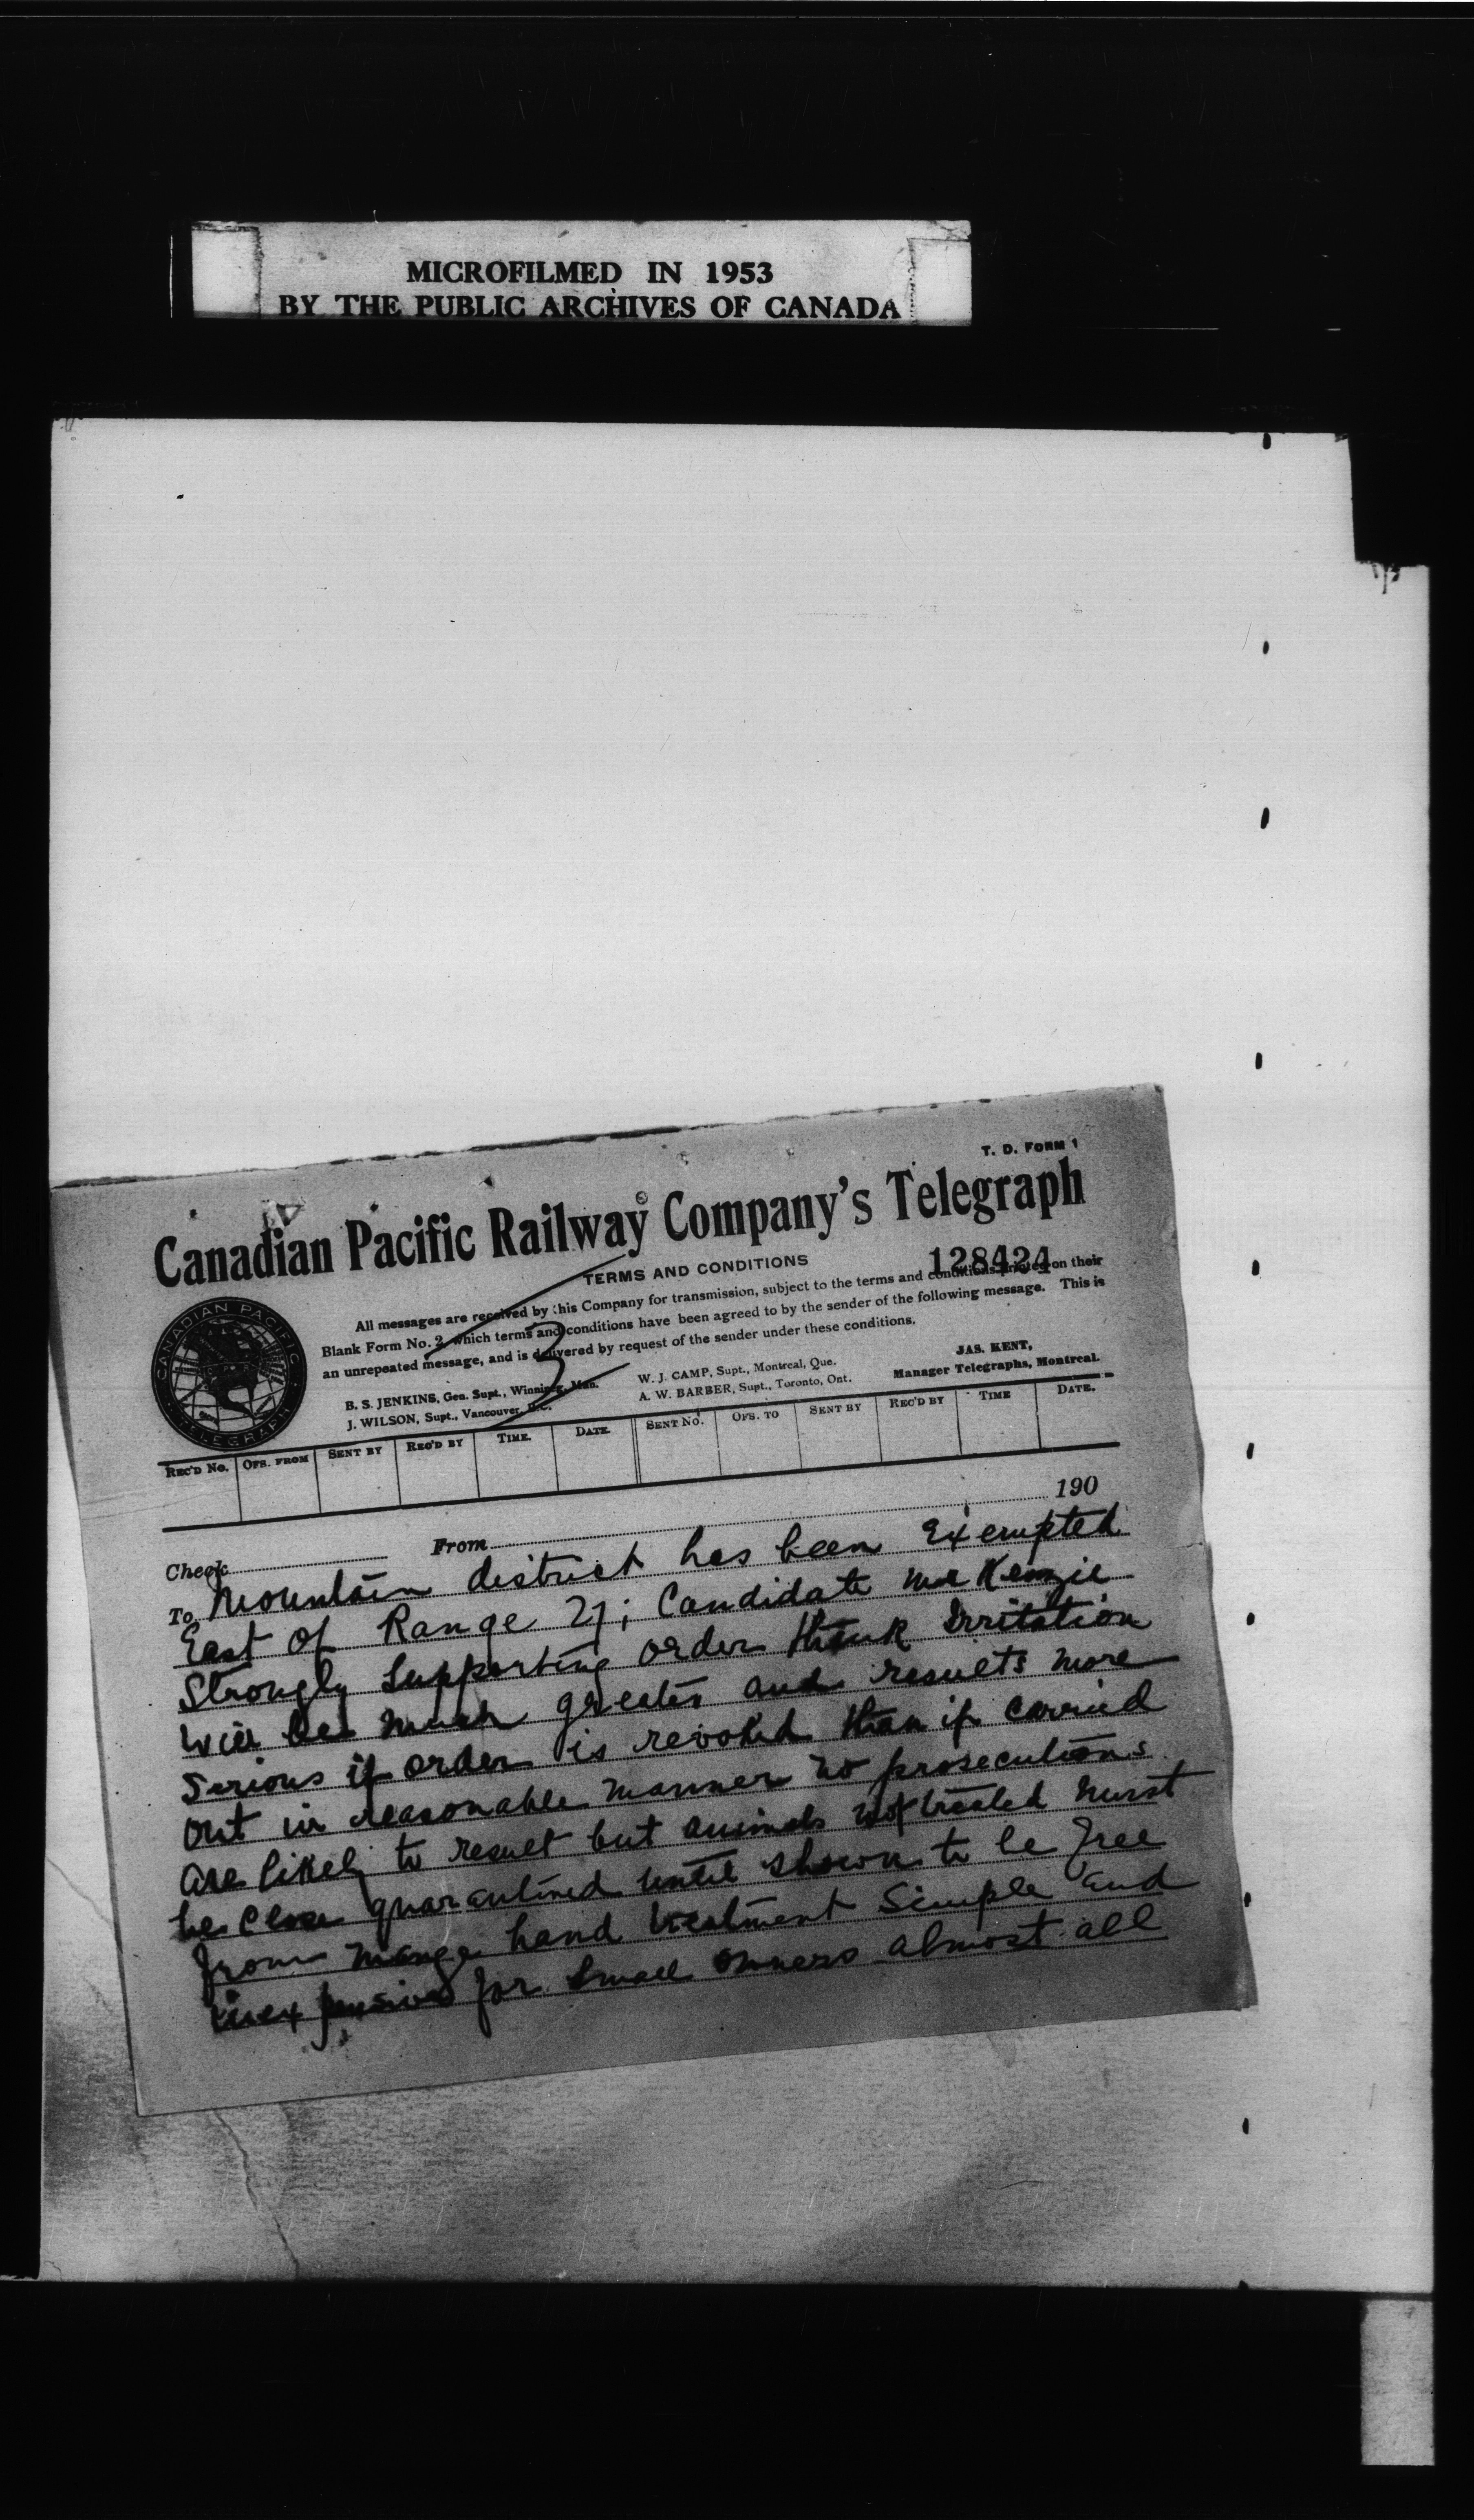 MICROFILMED IN 1953
BY THE PUBLIC ARCHIVES OF CANADA
T. D. FORM 1
Canadian Pacific Railway Company's Telegraph
TERMS AND CONDITIONS
128424
All messages are received by this Company for transmission, subject to the terms and conditions printed on their
Blank Form No. 2, which terms and conditions have been agreed to by the sender of the following message. This is
an unrepeated message, and is delivered by request of the sender under these conditions.
3
JAS. KENT,
Manager Telegraphs, Montreal.
W. J. CAMP, Supt., Montreal, Que.
A. W. BARBER, Supt., Toronto, Ont.
B. S. JENKINS, Gen. Supt., Winnipeg, Man.
J. WILSON, Supt., Vancouver, B.C.
CANADIAN PACIFIC TELEGRAPH
REC'D No. OFS. FROM SENT BY REC'D BY TIME. DATE. SENT No. OFS. TO SENT BY REC'D BY TIME DATE.
190
Check From
To Mountain district has been Exempted
East of Range 27; Candidate McKenzie
Strongly Supporting order think Irritation
will be much greater and results more
Serious if order is revoked than if carried
out in reasonable manner no prosecutions
are likely to result but animals not treated must
be close quarantined until shown to be free
from mange hand treatment Simple and
inexpensive for Small owners almost all